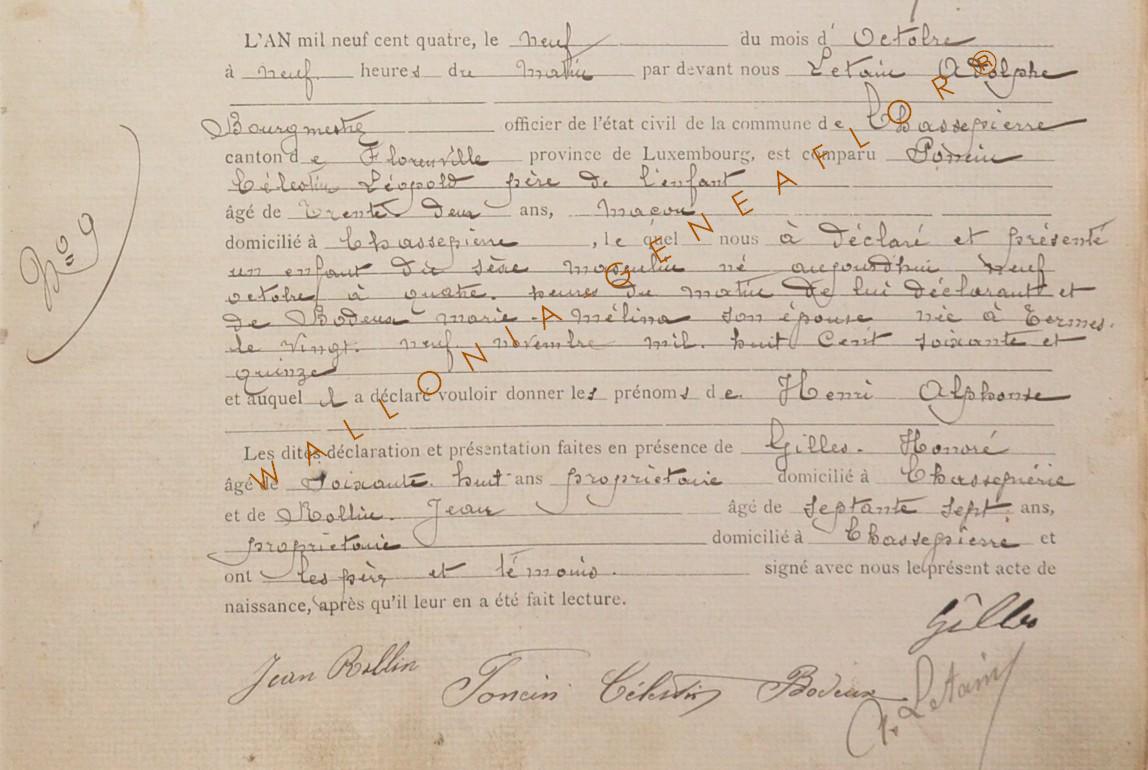 L'AN mil neuf cent quatre, le neuf du mois d' Octobre
à neuf heures du Matin par devant nous Letain Adolphe
Bourgmestre officier de l'état civil de la commune de Chassepierre
canton de Florenville province de Luxembourg, est comparu Poncin
Célestin Léopold père de l'enfant
âgé de trente deux ans, Maçon
domicilié à Chassepierre, lequel nous à déclaré et présenté
un enfant du sèxe masculin né aujourd'hui neuf
octobre à quatre heures du matin de lui déclarant et
de Bodeux marie Mélina son épouse née à Termes
le vingt neuf novembre mil huit Cent soixante et
quinze
et auquel il a déclaré vouloir donner les prénoms de Henri Alphonse
Les dites déclaration et présentation faites en présence de Gilles Honoré
âgé de Soixante huit ans propriétaire domicilié à Chassepierre
et de Rollin Jean âgé de septante sept ans,
propriétaire domicilié à Chassepierre et
ont les père et témoins signé avec nous le présent acte de
naissance, après qu'il leur en a été fait lecture.
N° 9
Gilles
Jean Rollin Poncin Célestin Bodeux A. Letain
WALLONIA GENEAFLOR®